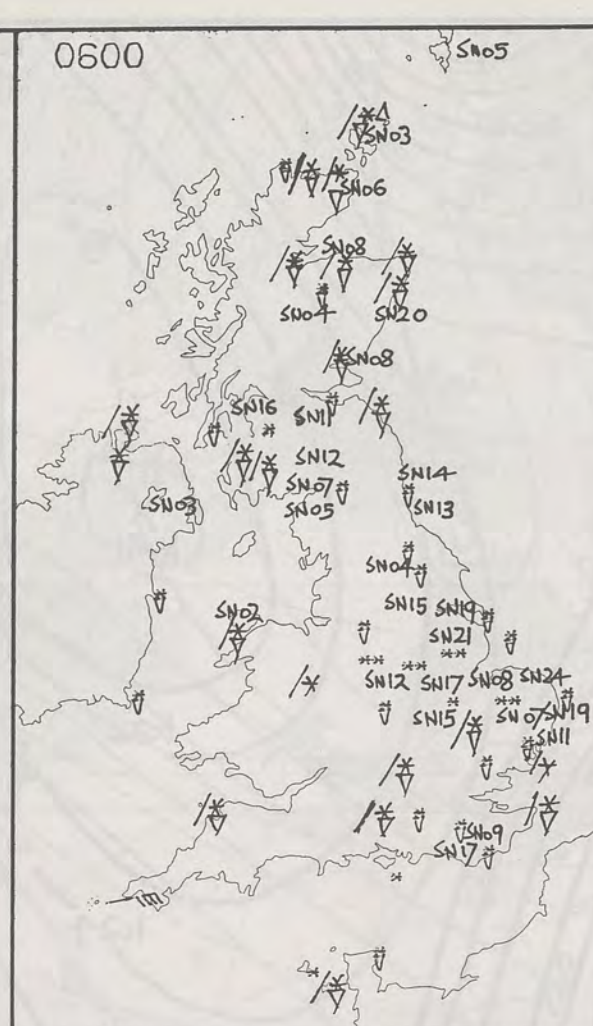 0600
SN05
SN03
SN06
SN08
SN04 SN20
SN08
SN16
SN11
SN12 SN14
SN07 SN13
SN03 SN05
SN04
SN15 SN19
SN02 SN21
SN12 SN17 SN08 SN24
SN15 SN07 SN19
SN11
SN09
SN17